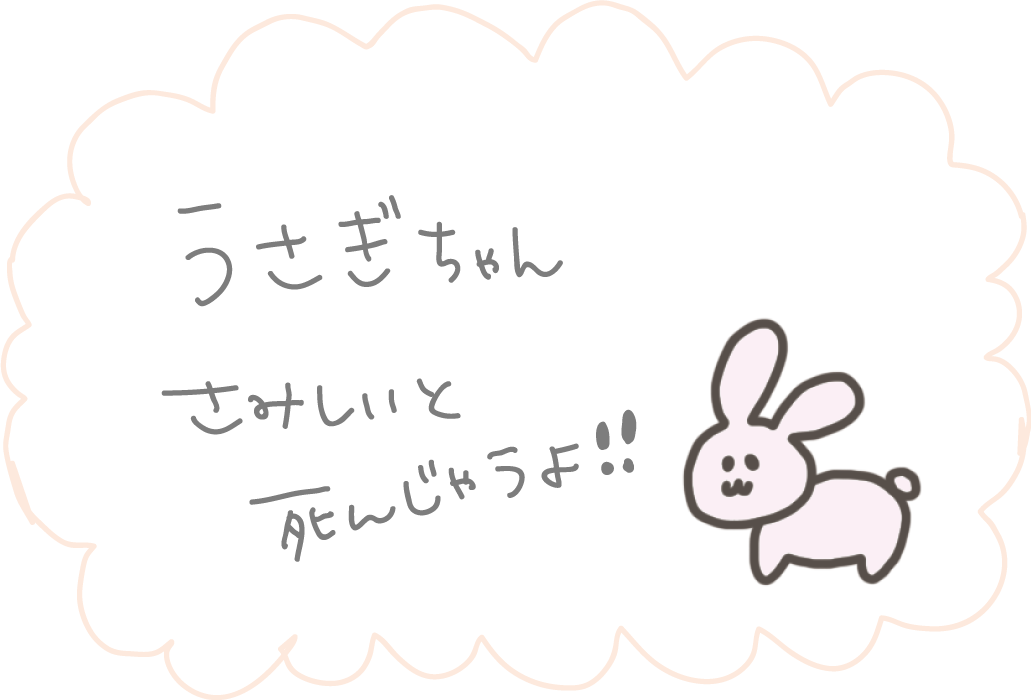 うさぎちゃん
さみしいと
死んじゃうよ!!